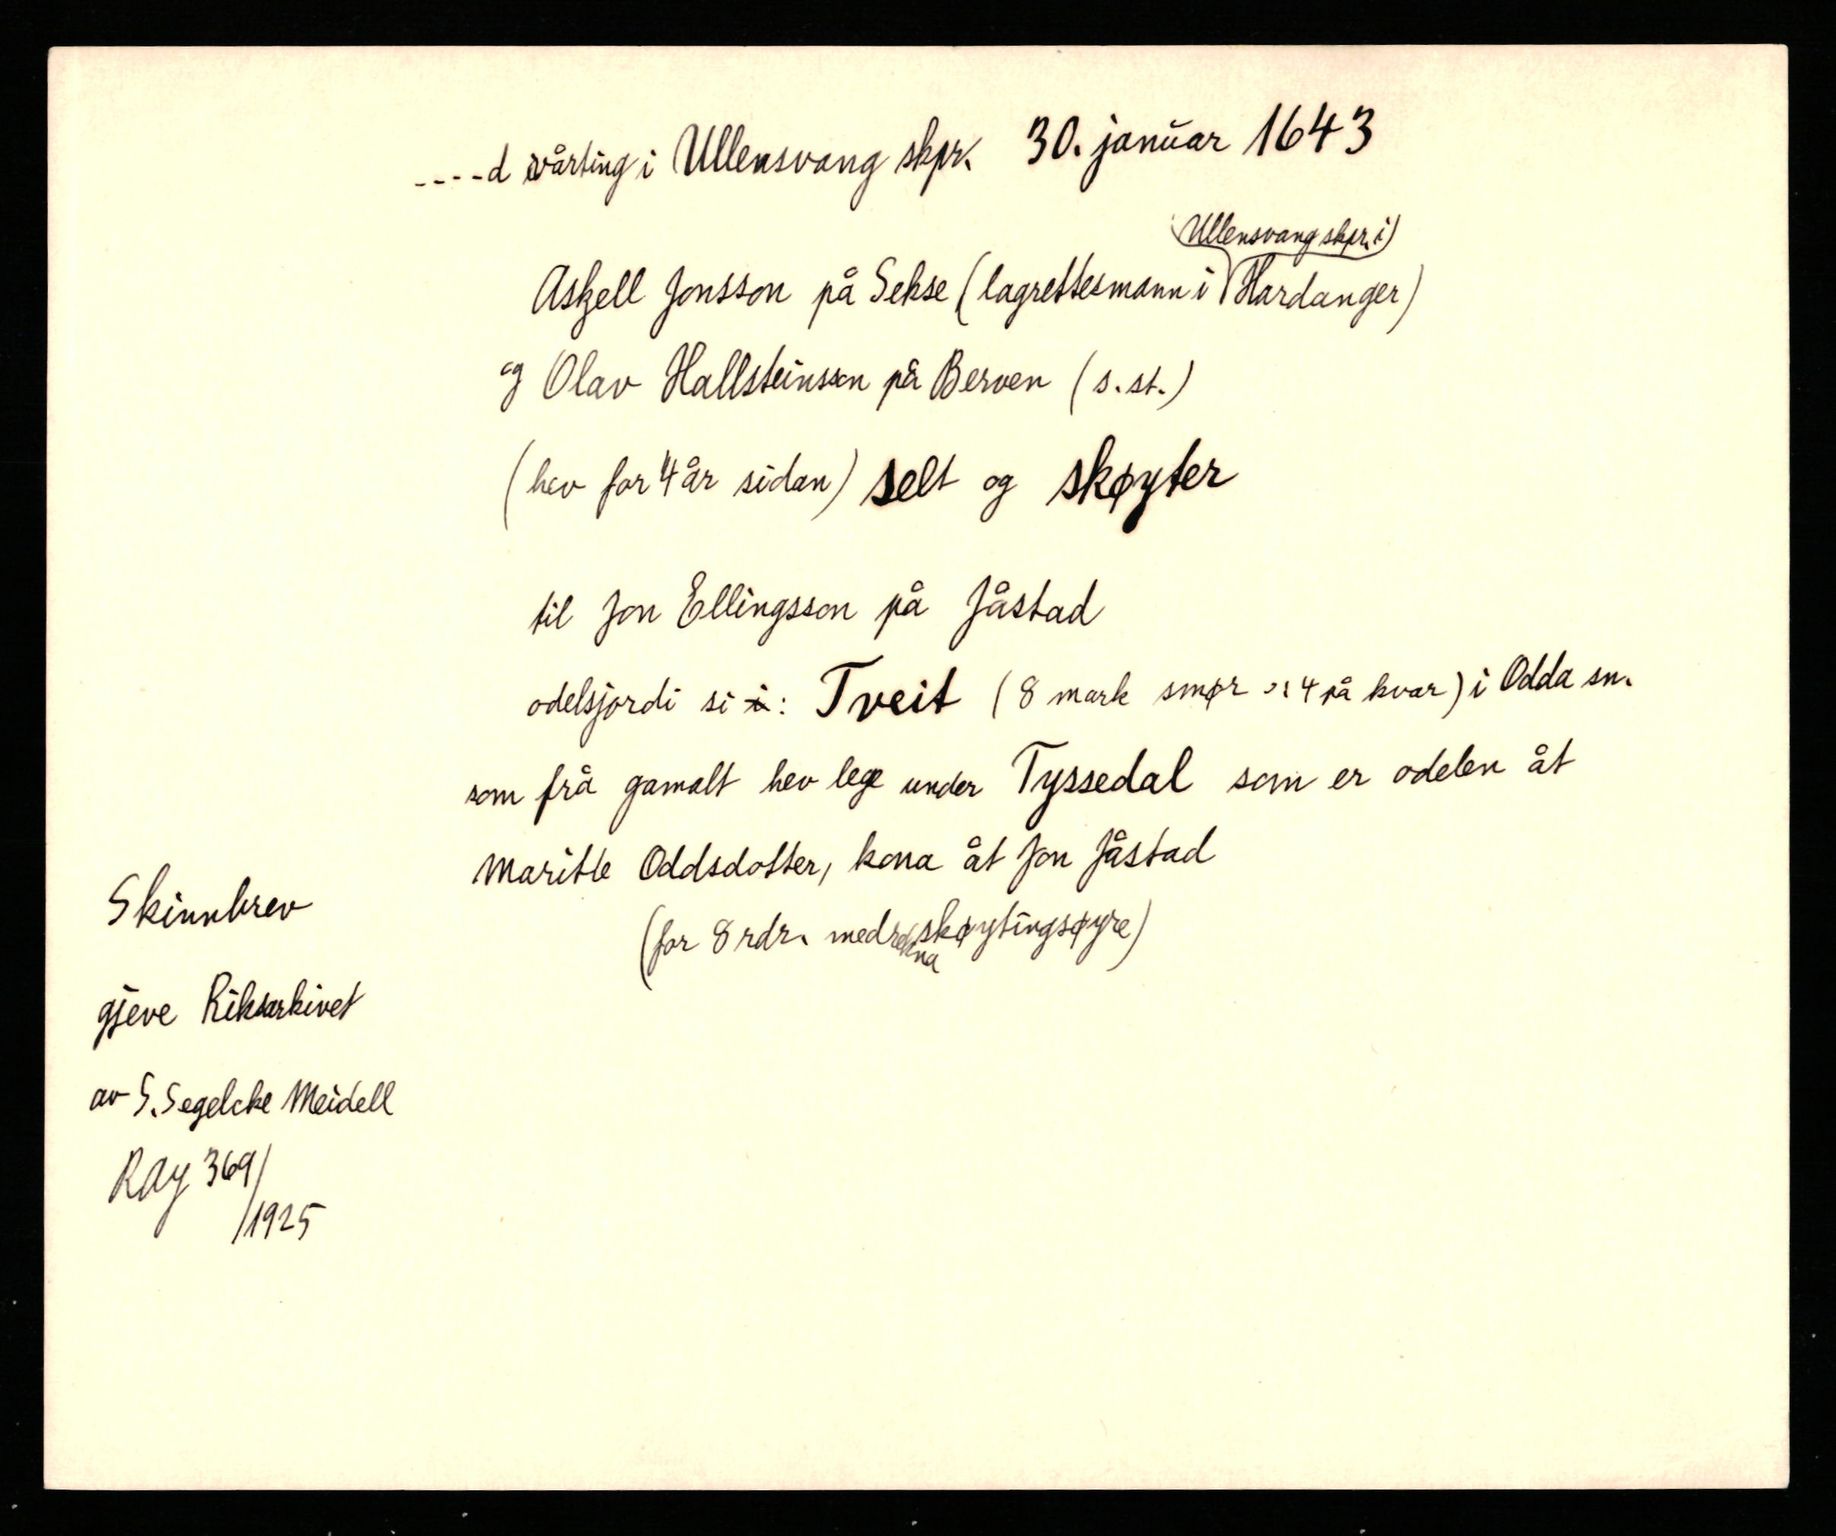 ----d vårting i Ullensvang skpr. 30. januar 1643
Ullensvang skpr. i)
Askell Jonsson på Sekse (lagrettesmann i Hardanger)
og Olav Hallsteinsson på Berven (s.st.)
(hev for 4 år sidan) selt og skøyter
til Jon Ellingsson på Jåstad
odelsjordi si i: Tveit (8 mark smør ɔ: 4 på kvar) i Odda sn.
som frå gamalt hev lege under Tyssedal som er odelen åt
Maritte Oddsdotter, kona åt Jon Jåstad
(for 8 rdr. medrekna skøytingsøyre)
Skinnbrev
gjeve Riksarkivet
av S. Segelcke Meidell
RAy 369/
/1925